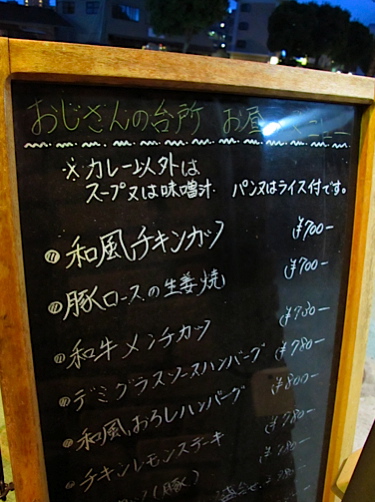 おじさんの台所 お昼のメニュー
※カレー以外は
スープ又は味噌汁 パン又はライス付です。
和風チキンカツ ¥700-
豚ロースの生姜焼 ¥700-
和牛メンチカツ ¥750-
デミグラスソースハンバーグ ¥780-
和風おろしハンバーグ ¥800-
チキンレモンステーキ ¥780-
(豚)